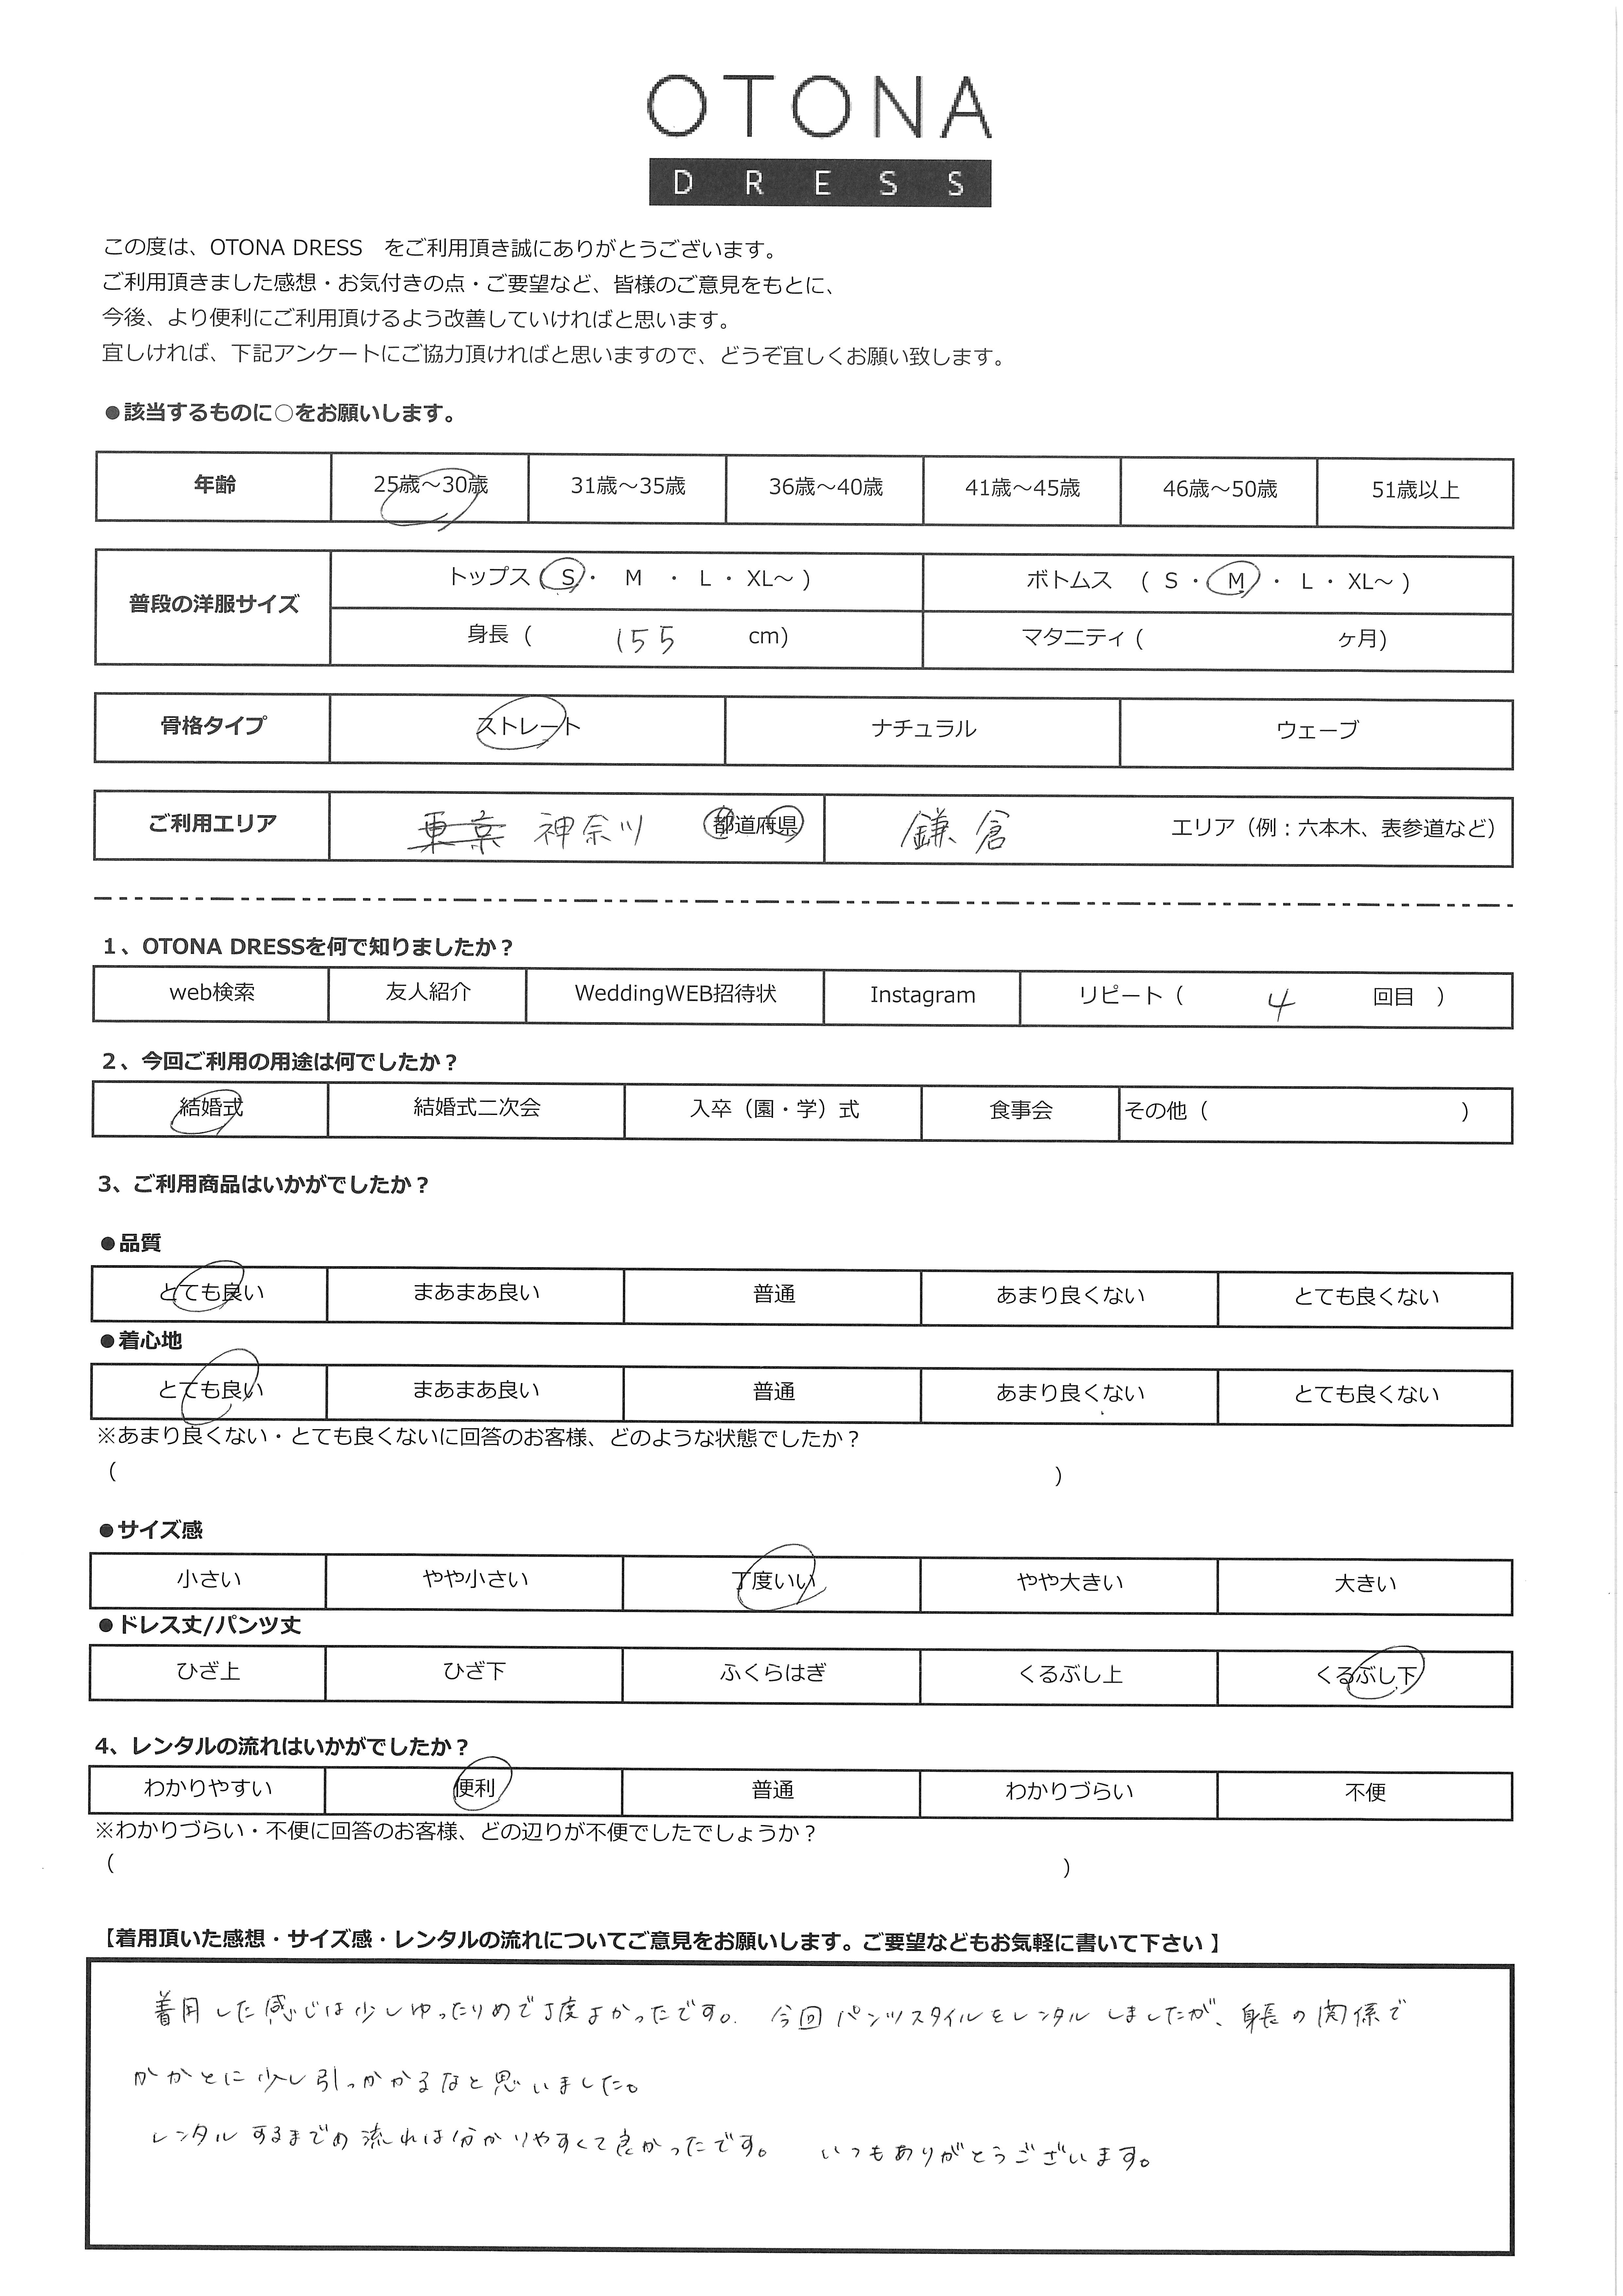 OTONA
DRESS
この度は、OTONA DRESS　をご利用頂き誠にありがとうございます。
ご利用頂きました感想・お気付きの点・ご要望など、皆様のご意見をもとに、
今後、より便利にご利用頂けるよう改善していければと思います。
宜しければ、下記アンケートにご協力頂ければと思いますので、どうぞ宜しくお願い致します。
●該当するものに○をお願いします。
年齢 25歳～30歳 31歳～35歳 36歳～40歳 41歳～45歳 46歳～50歳 51歳以上
普段の洋服サイズ トップス ( S ・ M ・ L ・ XL～ ) ボトムス ( S ・ M ・ L ・ XL～ )
身長 ( 155 cm) マタニティ ( ヶ月)
骨格タイプ ストレート ナチュラル ウェーブ
ご利用エリア 東京 神奈川 都道府県 鎌倉 エリア（例：六本木、表参道など）
1、OTONA DRESSを何で知りましたか？
web検索 友人紹介 WeddingWEB招待状 Instagram リピート（ 4 回目 ）
2、今回ご利用の用途は何でしたか？
結婚式 結婚式二次会 入卒（園・学）式 食事会 その他（ ）
3、ご利用商品はいかがでしたか？
●品質
とても良い まあまあ良い 普通 あまり良くない とても良くない
●着心地
とても良い まあまあ良い 普通 あまり良くない とても良くない
※あまり良くない・とても良くないに回答のお客様、どのような状態でしたか？
（ ）
●サイズ感
小さい やや小さい 丁度いい やや大きい 大きい
●ドレス丈/パンツ丈
ひざ上 ひざ下 ふくらはぎ くるぶし上 くるぶし下
4、レンタルの流れはいかがでしたか？
わかりやすい 便利 普通 わかりづらい 不便
※わかりづらい・不便に回答のお客様、どの辺りが不便でしたでしょうか？
（ ）
【着用頂いた感想・サイズ感・レンタルの流れについてご意見をお願いします。ご要望などもお気軽に書いて下さい 】
着用した感じは少しゆったりめで丁度よかったです。 今回パンツスタイルをレンタルしましたが、身長の関係で
かかとに少し引っかかるなと思いました。
レンタルするまでの流れは分かりやすくて良かったです。 いつもありがとうございます。